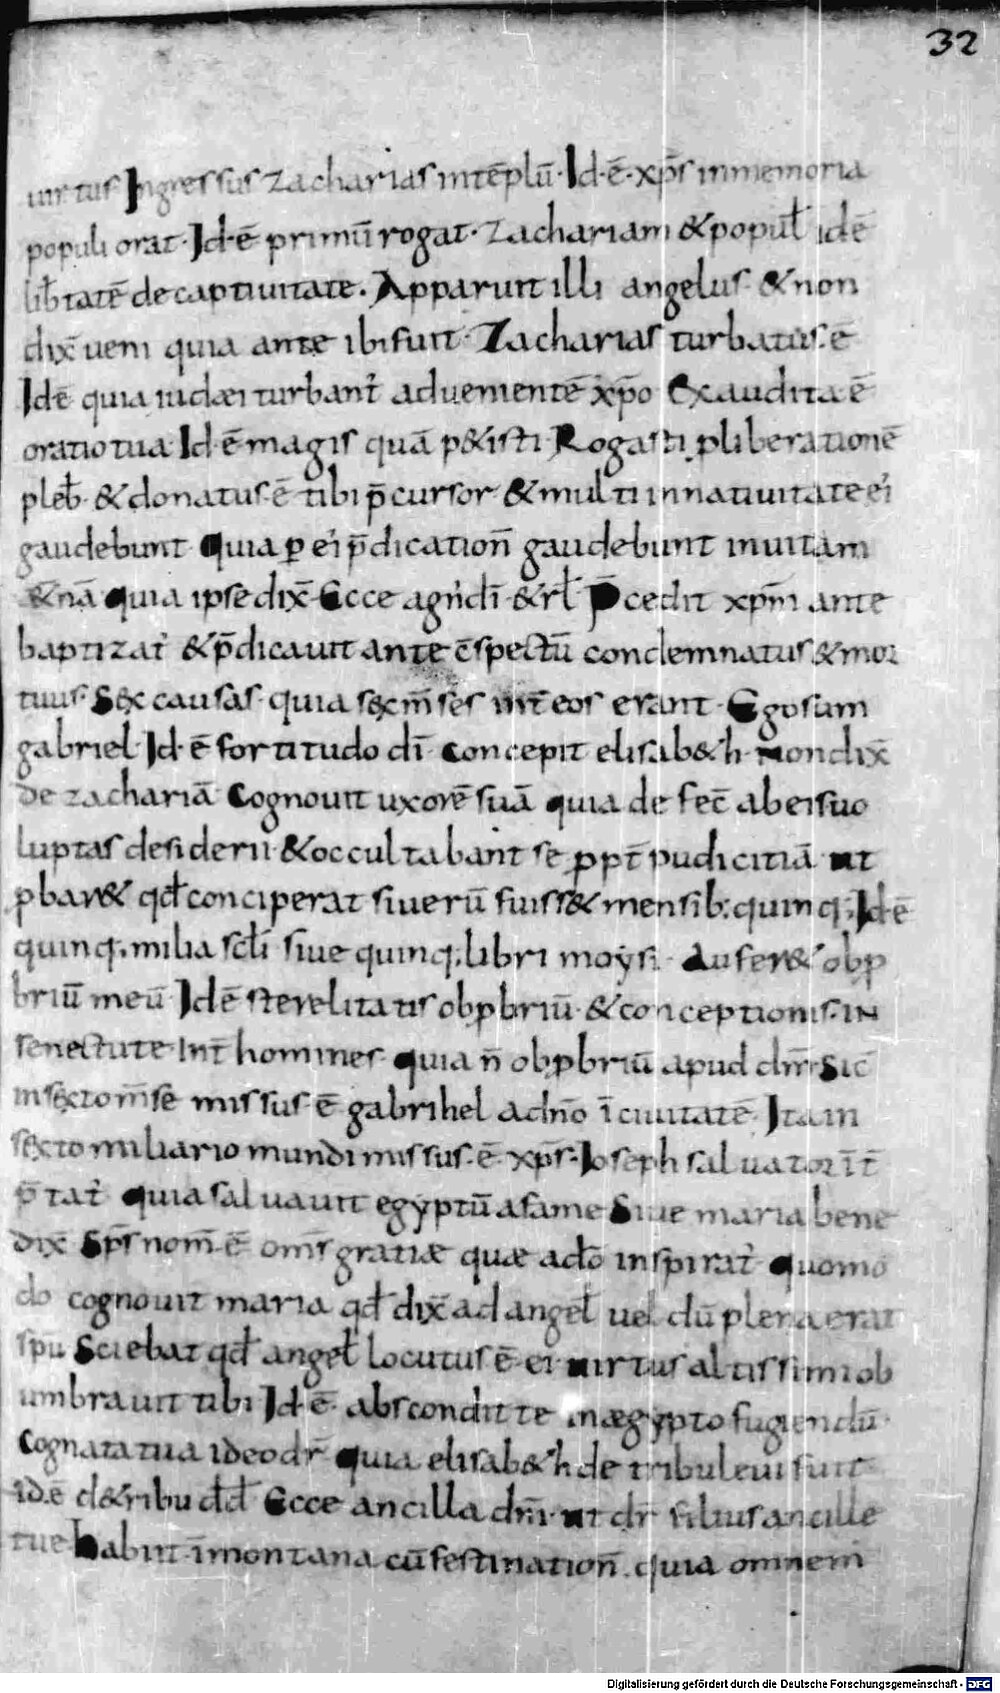 32
uirtus· Ingressus zacharias intēplū· Id·ē· xp̄s inmemoria
populi orat· Id·ē primū rogat· Zachariam &popul̄ idē
lib̄tatē decaptiuitate. Apparuit illi angelus· &non
dix̄ ueni quia ante ibifuit· Zacharias turbatus·ē
Idē quia iudæi turbant᷑ aduenientē xp̄o Exaudita ē
oratiotua· Id·ē magis quā p&isti· Rogasti ꝓliberationē
pleb̄· &donatus·ē tibi p̄cursor &multi innatiuitate ei᷒
gaudebunt· Quia ꝑ ei᷒ p̄dication̄ gaudebunt inuitam
&̄nā quia ipse dix̄ Ecce agn᷒ dī &rl̄ P̄cedit xp̄m ante
baptizat᷑ &p̄dicauit ante c̄spectū condemnatus &mor
tuus· Sex causas· quia sexm̄ses int̄ eos erant· Egosum
gabriel· Id·ē fortitudo dī· Concepit elisab&h· Nondix̄
de zachariā Cognouit uxorē suā quia de fec̄ abeisuo
luptas desiderii· &occultabant se ꝓpt̄ pudicitiā ut
ꝓbar& qđ conciperat siuerū fuiss& mensib; quinq; Idē
quinq; milia scł̄i siue quinq; libri moysi· Aufer& obꝓ
briū meū· Idē sterelitatis obꝓbriū· &conceptionis· IN
senectute· Int̄ homines· quia n̄ obꝓbriū apud dm̄· Sic̄
insextom̄se missus·ē gabrihel adnōī ciuitatē· Itain
sexto miliario mundi missus·ē· xp̄s· Ioseph saluator īt̄
p̄tat᷑ quia saluauit egyptū afame Siue maria bene
dix̄ Sp̄s nom̄·ē om̄s gratiæ quæ adō inspirat᷑ Quomo
do cognouit maria qđ dix̄ ad angel̄ uel dū plena erat
sp̄u Sciebat qđ angel̄ locutus ē· ei· uirtus altissimi ob
umbrauit tibi Id·ē· abscondit te inægypto fugiendū·
Cognata tua ideo dr̄ quia elisab&h de tribuleui fuit
id·ē d&ribu dd̄ Ecce ancilla dn̄i· ut dr̄ filius ancille
tue· habiit· īmontana cū festination̄· quia omnem
Digitalisierung gefördert durch die Deutsche Forschungsgemeinschaft - DFG